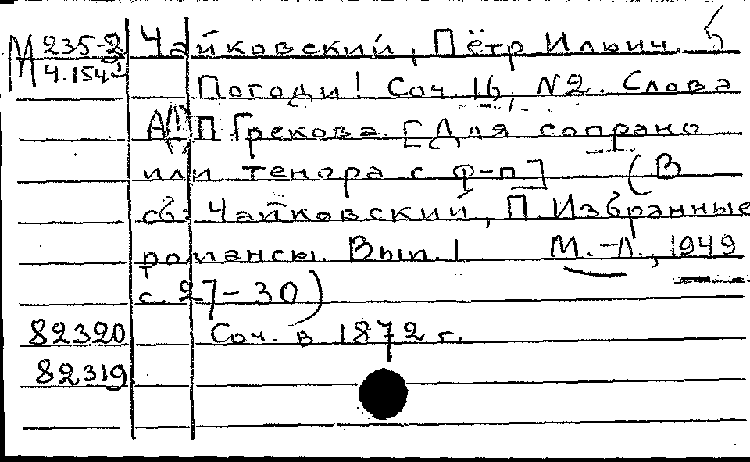 М 235-2 Чайковский, Пётр Ильич
Ч.154 Погоди! Соч. 16, №2. Слова
П. Грекова. [Для сопрано
или тенора с ф-п] (В
сб: Чайковский, П. Избранные
романсы. Вып. 1 М.-Л., 1949
с. 27-30)
82320 Соч. в 1872 г.
82319